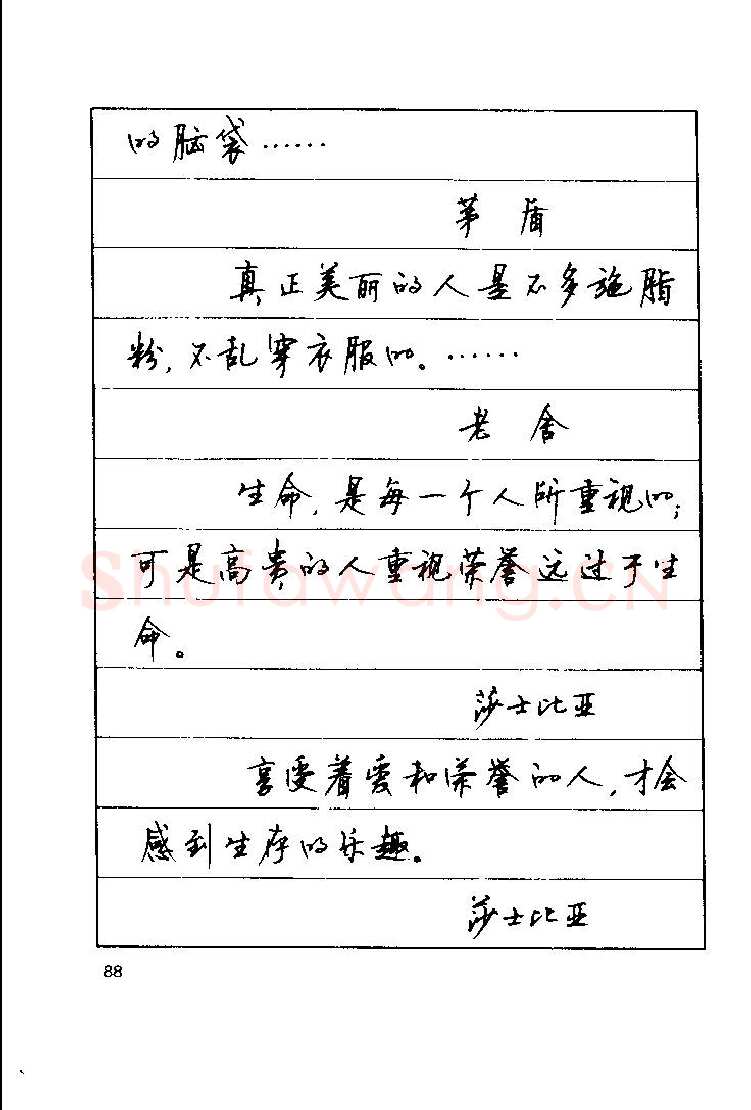 的脑袋……
茅盾
真正美丽的人是不多施脂
粉，不乱穿衣服的。……
老舍
生命，是每一个人所重视的；
可是高贵的人重视荣誉远过于生
命。
莎士比亚
享受着爱和荣誉的人，才会
感到生存的乐趣。
莎士比亚
88
Shufawang.CN